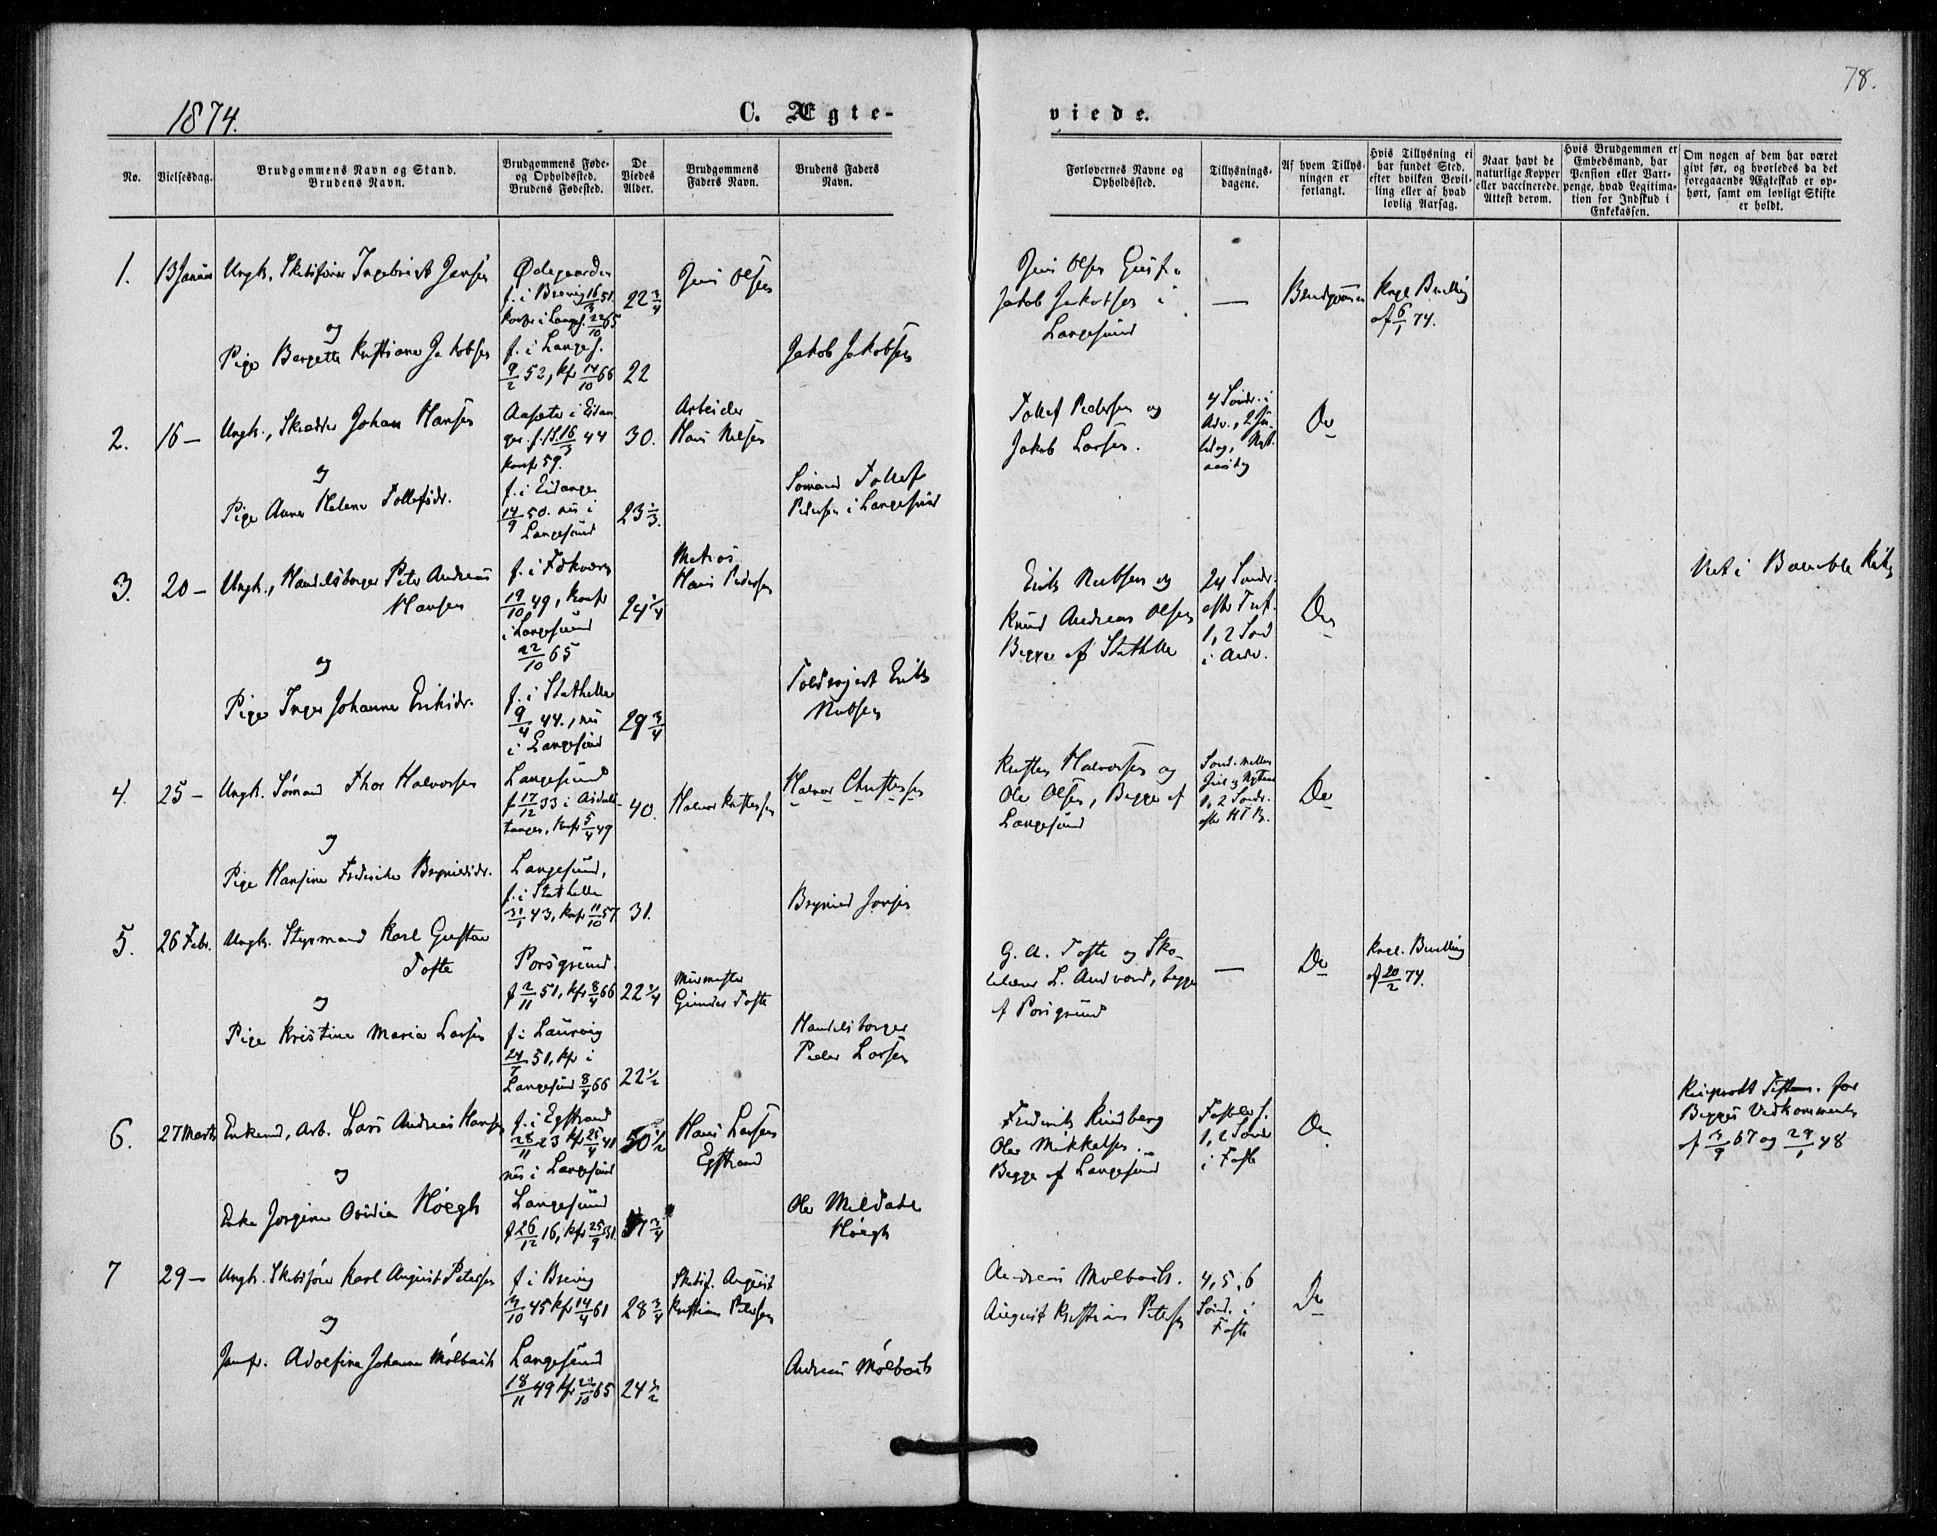 78.
1874.
C. Ægte-
viede.
No.
Vielsesdag.
Brudgommens Navn og Stand.
Brudens Navn.
Brudgommens Føde-
og Opholdsted.
Brudens Fødested.
De
Viedes
Alder.
Brudgommens
Faders Navn.
Brudens Faders
Navn.
Forlovernes Navne og
Opholdsted.
Tillysnings-
dagene.
Af hvem Tillys-
ningen er
forlangt.
Hvis Tillysning ei
har fundet Sted,
efter hvilken Bevil-
ling eller af hvad
lovlig Aarsag.
Naar havt de
naturlige Kopper
eller vaccinerede.
Attest derom.
Hvis Brudgommen er
Embedsmand, har
Pension eller Vart-
penge, hvad Legitima-
tion for Indskud i
Enkekassen.
Om nogen af dem har været
givt før, og hvorledes da det
foregaaende Ægteskab er op-
hørt, samt om lovligt Skifte
er holdt.
1.
13 Januar
Ungk. Skibsfører Ingebrict Jensen
og
Pige Bergette Kristiane Jakobsen
Ødegaarden
f. i Brevig 16/3 51.
konf. i Langes. 22/10 65
f. i Langes.
9/2 52, kf 14/10 66
22 3/4
22
Jens Olsen
Jakob Jakobsen
Jens Olsen
Jakob Jakobsen i
Langesund
—
Brudgommen
Kngl. Bevilling
af 6/1 74.
2.
16 —
Ungk., Skrædder Johan Hansen
og
Pige Anne Helene Tollefsdr.
i Eidan-
ger. 44
konf 59.
f. i Eidanger
14/9 50. nu i
Langesund
30.
23 1/3.
Arbeider
Hans Nilsen
Sømand Tollef
Pedersen i Langesund
Tollef Pedersen og
Jakob Larsen.
4 Sønd. i
Adv., 2 Ju-
ledag, Nyt-
aarsdag
Do
3.
20 —
Ungk., Handelsborger Peter Andreas
Hansen
og
Pige Inger Johanne Eriksdr.
f. i
19/10 49, konf
i Langesund
22/10 65
f. i Stathelle
9/4 44., nu
i Langesund
24 1/4
29 3/4
Matros
Hans Pedersen
Toldrojert Erik
Nubsen
Erik Nubsen og
Knud Andreas Olsen
Begge af Stathelle
24 Sønd.
efter Tref.
1, 2 Sønd
i Adv.
Do
Viet i Bamble Kirke
4.
25 —
Ungk. Sømand Thor Halvorsen
og
Pige Hansine Frederikke Brynildsdr.
Langesund
f 17/12 33 i
tangen, konf 5/4 49
Langesund,
f. i Stathelle
31/1 43, konf 11/10 57
40.
31.
Halvor Kristensen
Halvor Christensen
Brynild Jonsen
Kristen Halvorsen og
Ole Olsen, Begge af
Langesund
Sønd. mellem
Jul og Nytaar
1, 2 Sønd.
efter
Do
5.
26 Febr.
Ungk. Styrmand Karl Gustav
Tofte
og
Pige Kristine Marie Larsen
Porsgrund.
f 2/11 51, kf 8/4 66
f. i Laurvig
51, kf i
Langesund 8/4 66
22 1/4
22 1/2
Murmester
Gunder Tofte
Handelsborger
Peder Larsen
G. A. Tofte og Sko-
L. Andvord, begge
af Porsgrund
—
Do
Kngl. Bevilling
af 20/2 74.
6.
27 Marts
Enkemd, Arb. Lars Andreas Hansen
og
Enke Jørgine Ovidia Høegh
f. i Egstrand
28/11 23 kf 25/4 41
nu i Langesund
Langesund
f 26/12 16, kf 25/9 31.
50 1/2
57 3/4
Hans Larsen
Egstrand
Ole Meldahl
Høegh
Frederik Rindberg
Ole Mikkelsen.
Begge af Langesund
Fastelv s.
1, 2 Sønd
i Faste
Do
for
Begges Vedkommende
af 3/9 67 og 29/1 48
7
29 —
Ungk. Skibsfører Karl August Petersen
og
Jomfr. Adolfine Johanne Mølbach
f i Brevig
3/10 45 kf 14/4 61
Langesund
18/11 49 kf 22/10 65
28 3/4
24 1/2
Skibsf. August
Kristian Petersen
Andreas Mølbach
Andreas Mølbach.
August Kristian Petersen
4, 5, 6
Sønd. i
Faste
Do